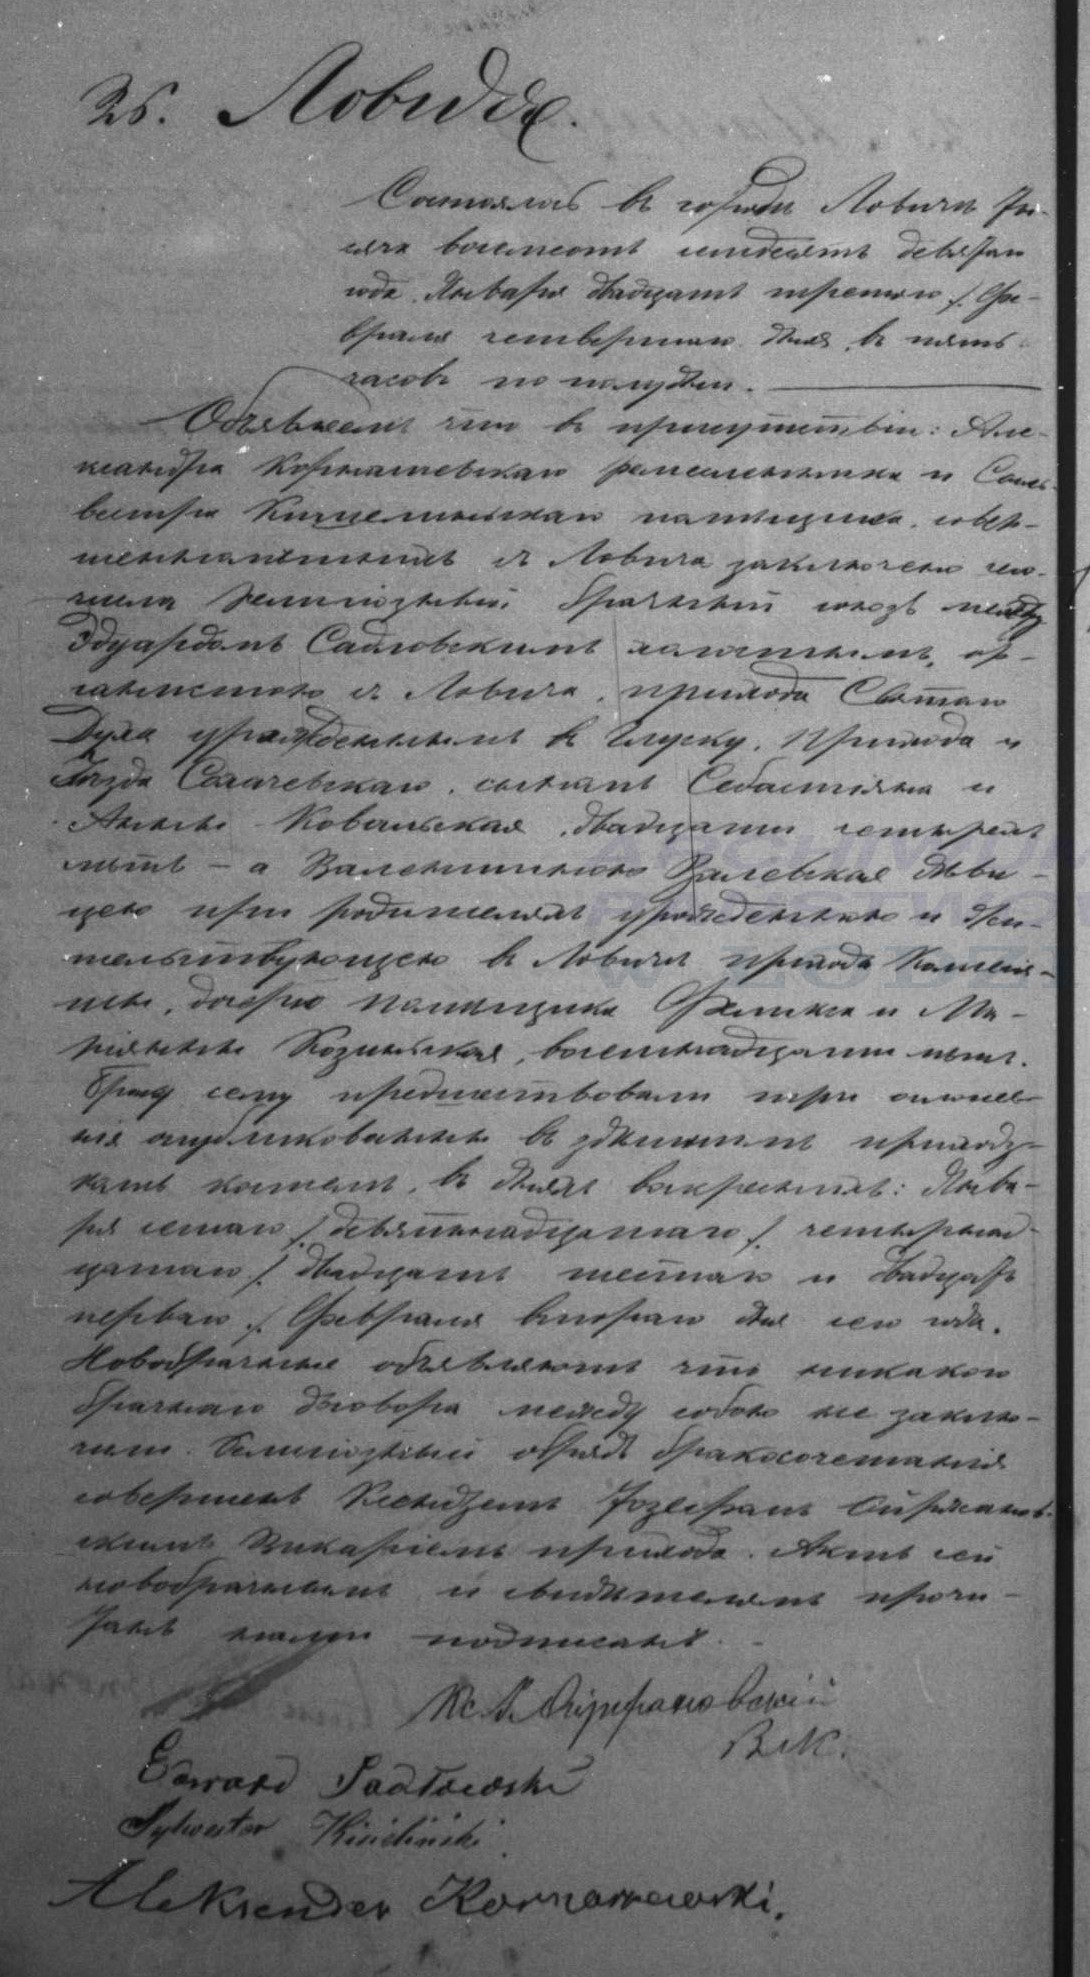 26. Ловичъ.
Состоялось въ городѣ Ловичѣ ты-
сяча восемсотъ семдесятъ девятаго
года, Января двадцать третьяго /: Фе-
враля четвертаго дня, въ пять
часовъ по полудни.
Объявляемъ что въ присутствіи: Але-
ксандра Корнашевскаго ремесленника и Силь-
вестра Кицелинскаго помѣщика, совер-
шеннолѣтнихъ изъ Ловича заключенъ сего
числа религіозный брачный союзъ между
Эдуардомъ Садловскимъ холостымъ, ор-
ганистою изъ Ловича, прихода Святаго
Духа урожденнымъ въ Глуску, прихода и
уѣзда Сохачевскаго, сыномъ Себастіяна и
Анны Ковальская, двадцати четырехъ
лѣтъ – а Валентиною Залевская дѣви-
цею при родителяхъ урожденною и жи-
тельствующею въ Ловичѣ прихода Коллегія-
ты, дочерью помѣщика Феликса и Ма-
ріянны Козинская, восемнадцати лѣтъ.
Браку сему предшествовали три оглаше-
нія опубликованныя въ здѣшнемъ приходс-
комъ костелѣ, въ дняхъ воскресныхъ: Янва-
ря седьмаго /: девятнадцатаго /: четырнад-
цатаго /: двадцать шестаго и двадцать
перваго /: Февраля втораго дня сего года.
Новобрачные объявляютъ что никакого
брачнаго договора между собою не заклю-
чили. Религіозный обрядъ бракосочетанія
совершенъ Ксендземъ Юзефомъ
Викаріемъ прихода. Актъ сей
новобрачнымъ и свидѣтелямъ прочи-
танъ нами подписанъ.
Кс.
Вик.
Edward Sadłowski
Sylwester Kiciliński
Aleksender Kornaszewski.